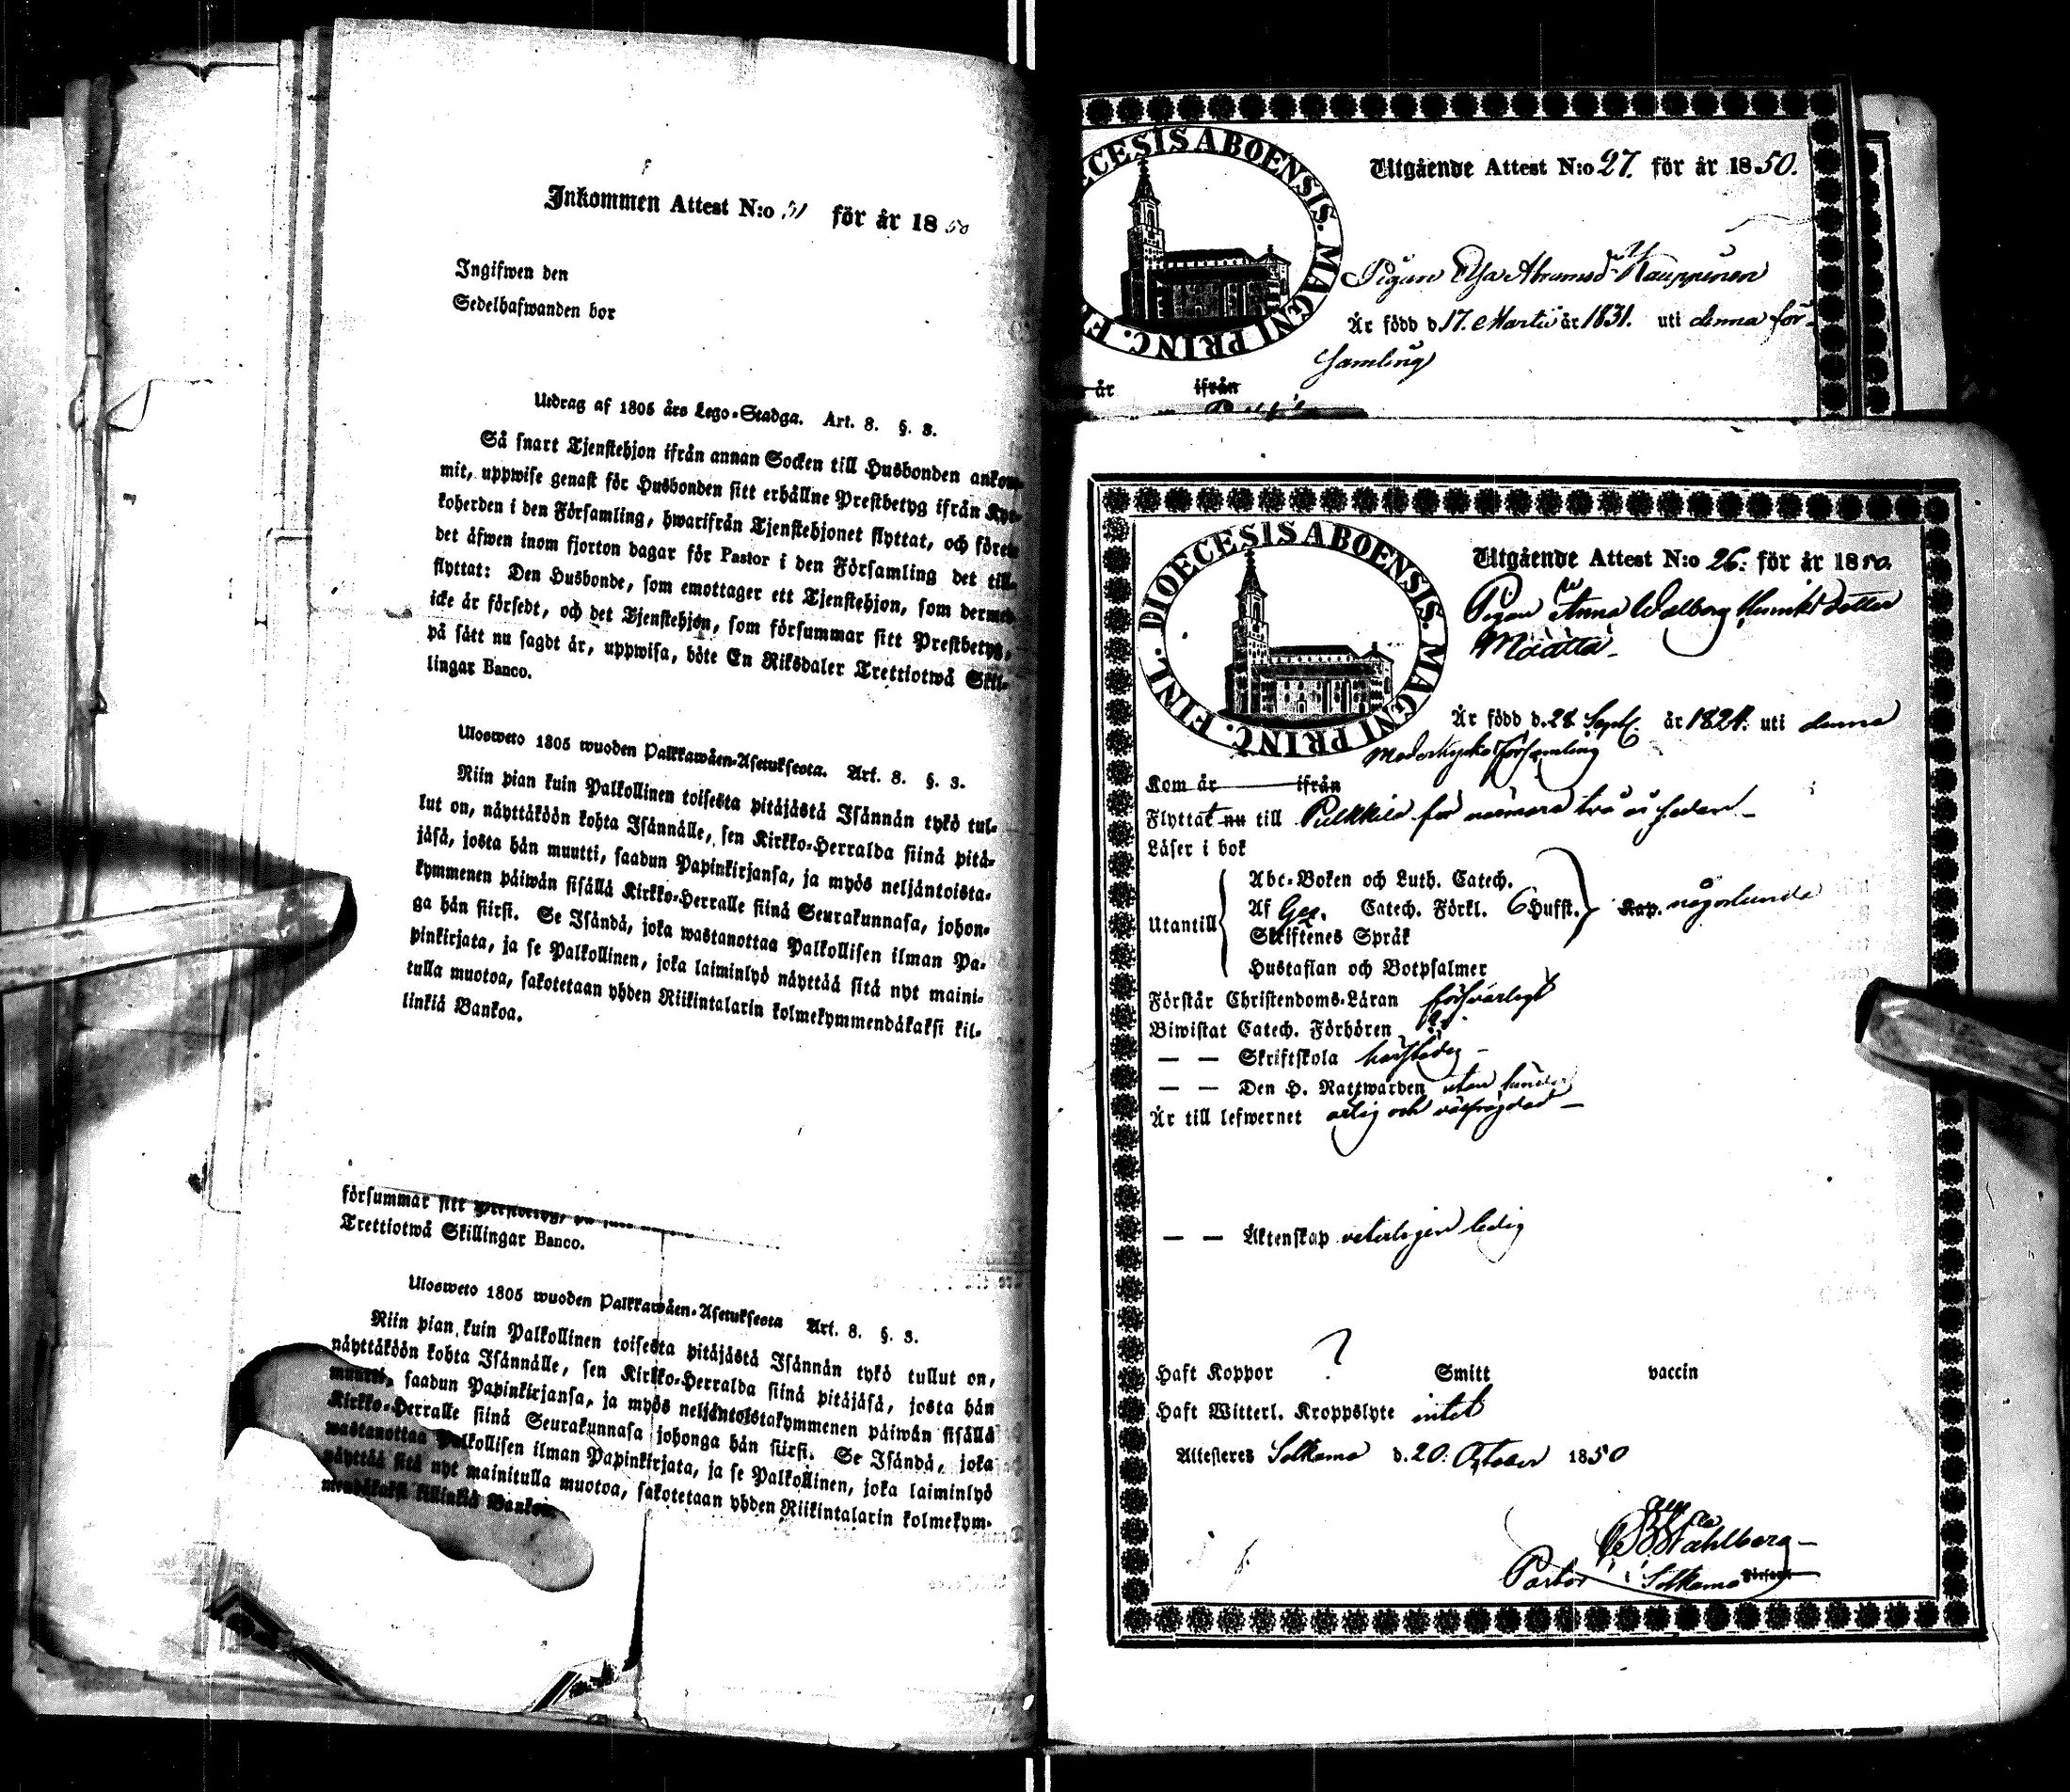 Inkommen Attest N:o 31 för år 1850
Ingifwen den
Sedelhafwanden bor
Utdrag af 1805 års Lego-Stadga. Art. 8. §. 3.
Så snart Tjenstehjon ifrån annan Socken till Husbonden ankom-
mit, uppwise genast för Husbonden sitt erhållne Prestbetyg ifrån Kyr-
koherden i den Församling, hwarifrån Tjenstehjonet flyttat, och förete
det äfwen inom fjorton dagar för Pastor i den Församling det till-
flyttat: Den Husbonde, som emottager ett Tjenstehjon, som dermed
icke är försedt, och det Tjenstehjon, som försummar sitt Prestbetyg,
på sätt nu sagdt är, uppwisa, böte En Riksdaler Trettiotwå Skil-
lingar Banco.
Ulosweto 1805 wuoden Palkkawäen-Asetuksesta. Art. 8. §. 3.
Niin pian kuin Palkollinen toisesta pitäjästä Isännän tykö tul-
lut on, näyttäköön kohta Isännälle, sen Kirkko-Herralda siinä pitä-
jäsä, josta hän muutti, saadun Papinkirjansa, ja myös neljäntoista-
kymmenen päiwän sisällä Kirkko-Herralle siinä Seurakunnasa, johon-
ga hän siirsi. Se Isändä, joka wastanottaa Palkollisen ilman Pa-
pinkirjata, ja se Palkollinen, joka laiminlyö näyttää sitä nyt maini-
tulla muotoa, sakotetaan yhden Riikintalarin kolmekymmendäkaksi kil-
linkiä Bankoa.
försummar sitt Prestbetyg, på
Trettiotwå Skillingar Banco.
Ulosweto 1805 wuoden Palkkawäen-Asetuksesta Art. 8. §. 3.
Niin pian kuin Palkollinen toisesta pitäjästä Isännän tykö tullut on,
näyttäköön kohta Isännälle, sen Kirkko-Herralda siinä pitäjäsä, josta hän
muutti, saadun Papinkirjansa, ja myös neljäntoistakymmenen päiwän sisällä
Kirkko-Herralle siinä Seurakunnasa johonga hän siirsi. Se Isändä, joka
wastanottaa Palkollisen ilman Papinkirjata, ja se Palkollinen, joka laiminlyö
näyttää sitä nyt mainitulla muotoa, sakotetaan yhden Riikintalarin kolmekym-
mendäkaksi killinkiä Bankoa.
CESIS ABOENSIS. MAGNI PRINC. FI
Utgående Attest N:o 27. för år 1850.
Pigan Elsa Abramsdr Kauppinen
Är född d. 17. Martii år 1831. uti denna för-
samling
år ifrån
DIOECESIS ABOENSIS. MAGNI PRINC. FINL.
Utgående Attest N:o 26. för år 1850.
Pigan Anna Walborg Henriksdotter
Määttä
Är född d. 28 Sept. år 1821. uti denna
Moderkyrko församling
Kom år ifrån
Flyttat nu till Pulkkila för närmare två år sedan
Läser i bok
Utantill
Abc-Boken och Luth. Catech.
Af Gez. Catech. Förkl. 6 Hufst. Kap. någorlunda
Skriftenes Språk
Hustaflan och Botpsalmer
Förstår Christendoms-Läran försvarligt
Biwistat Catech. Förhören
— — Skriftskola härstädes
— — Den H. Nattwarden utan hinder
Är till lefwernet ärlig och välfrägdad
— — Äktenskap veterligen ledig
Haft Koppor ? Smitt vaccin
Haft Witterl. Kroppslyte intet
Attesteres Sotkamo d. 20. October 1850
Wahlberg
Pastor i Sotkamo